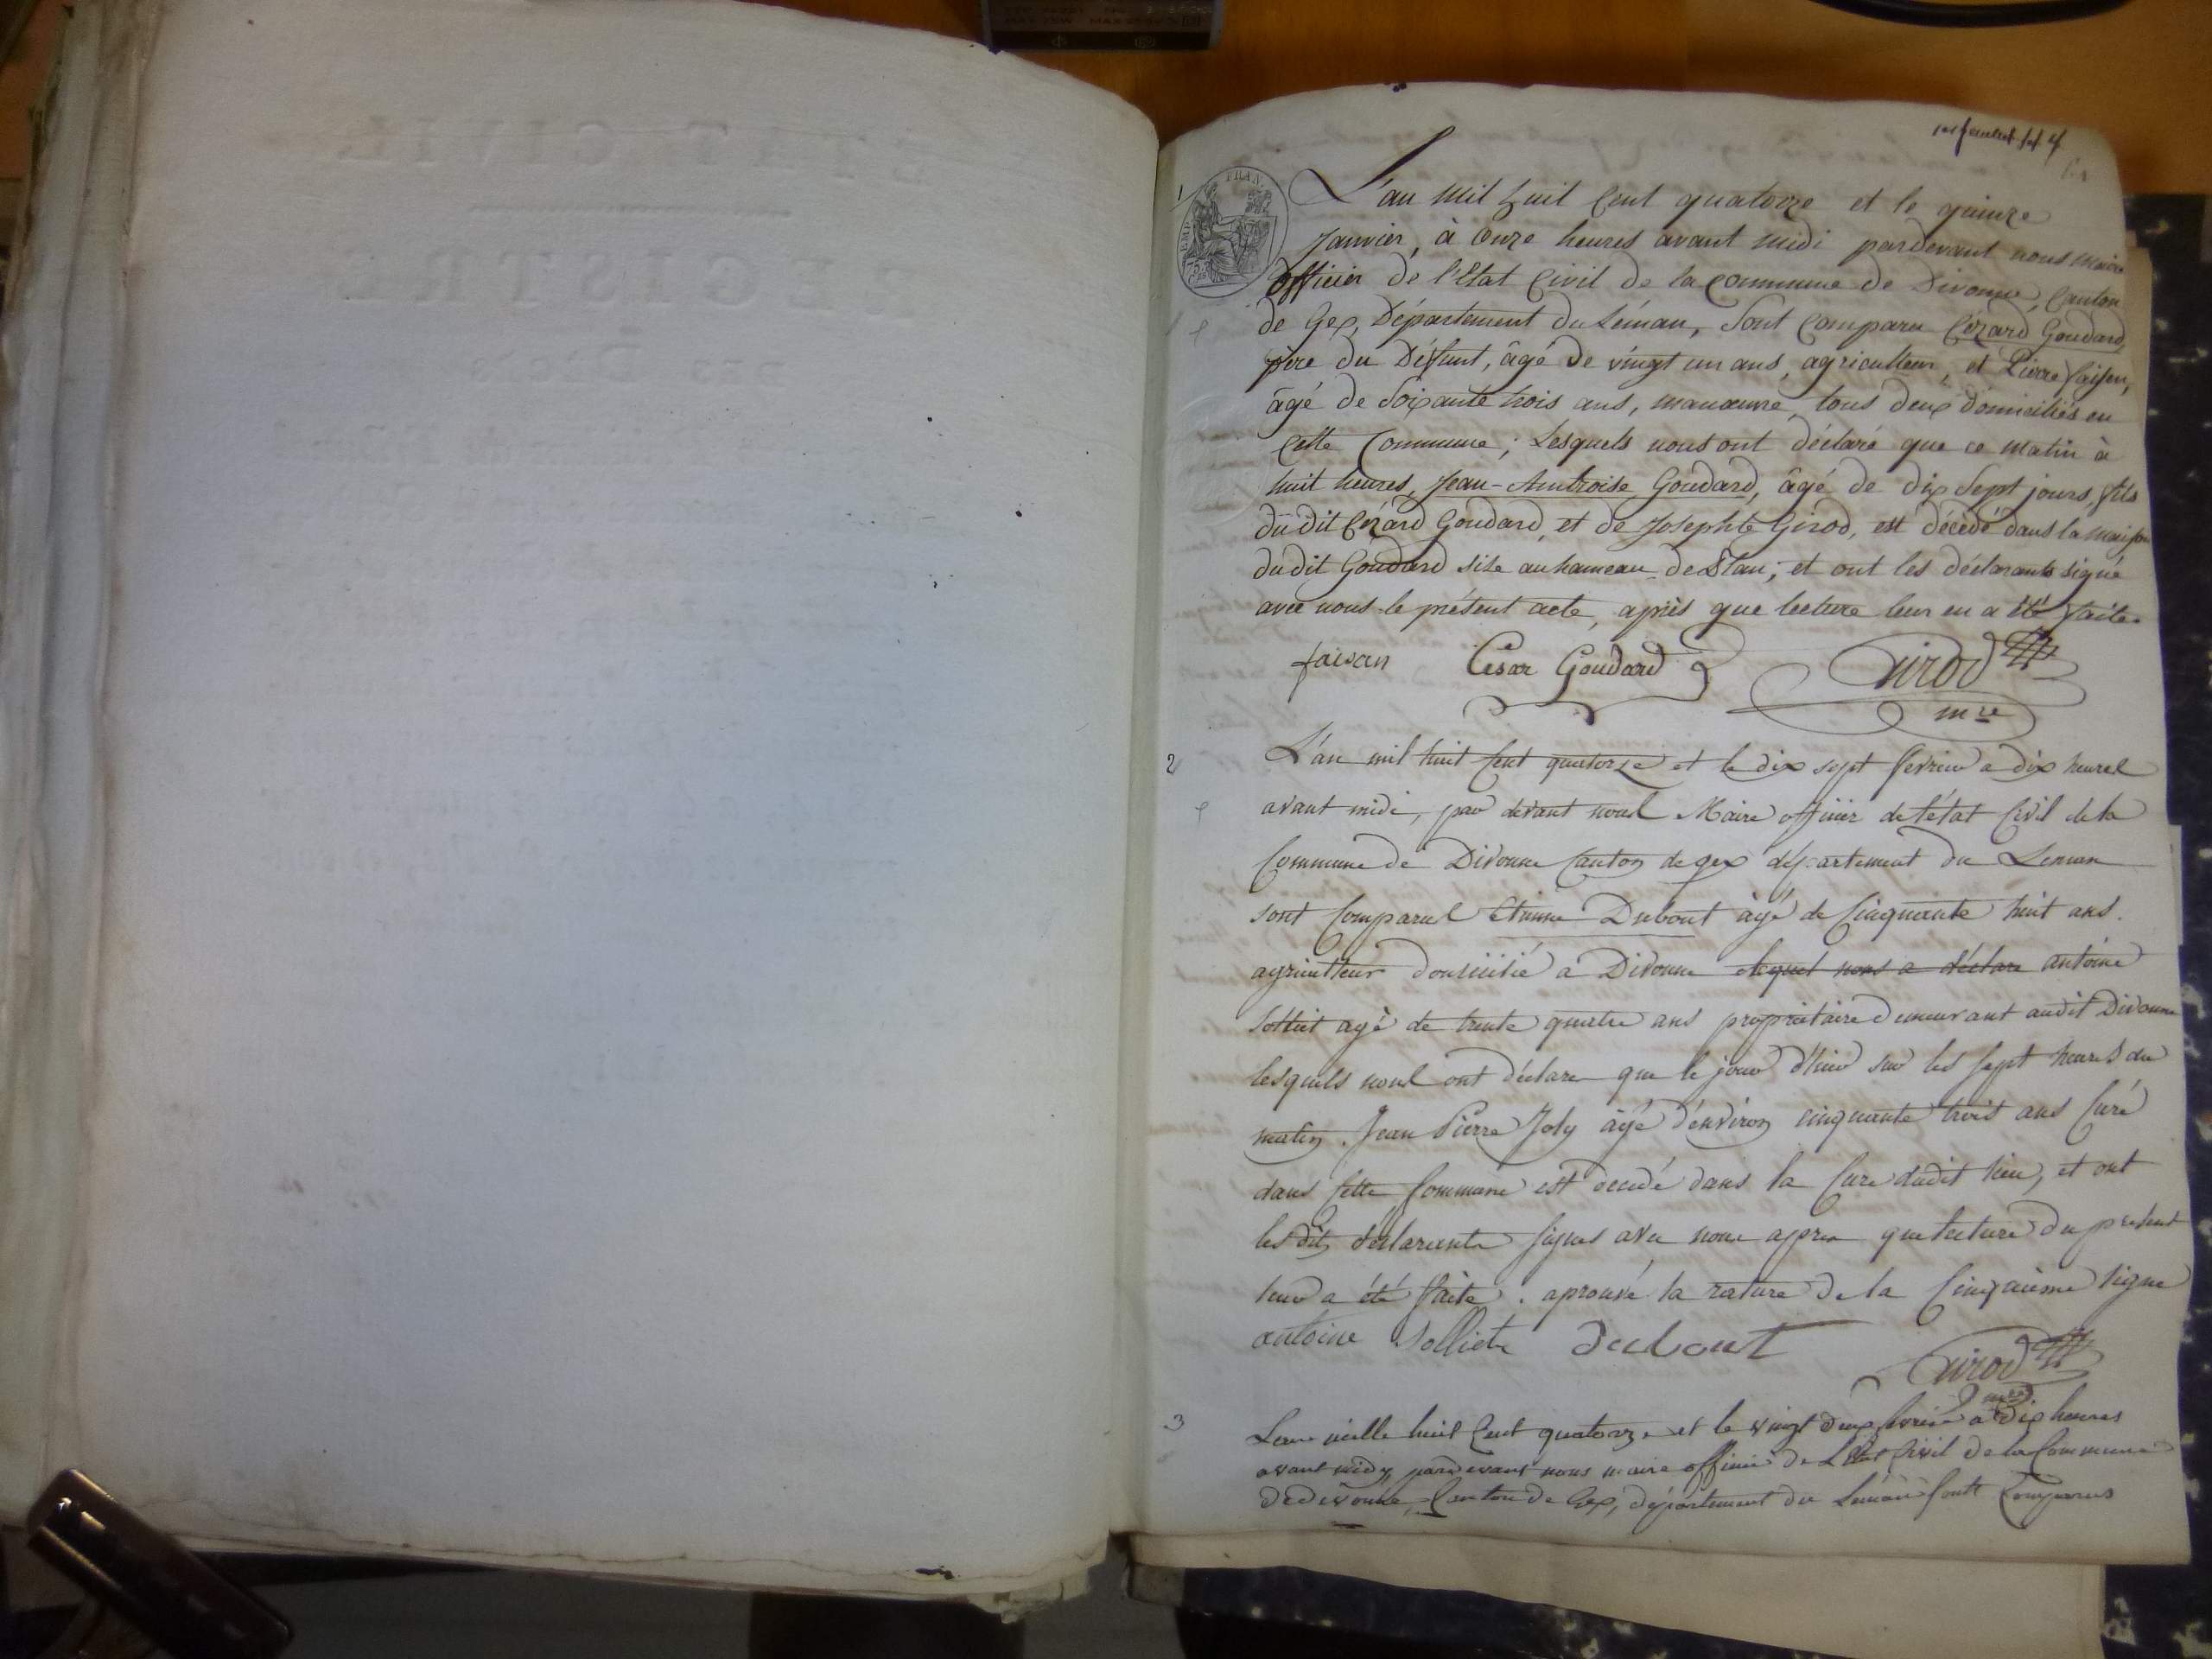 1
L'an Mil huit Cent quatorze et le quinze
Janvier, à Onze heures avant midi pardevant nous maire
Officier de l'Etat Civil de la Commune de Divonne, Canton
de Gex, Département du Léman, Sont Comparu Cézard Goudard,
père du Défunt, âgé de vingt un ans, agriculteur, et Pierre faisan,
âgé de Soixante trois ans, manœuvre, tous deux domiciliés en
Cette Commune; Lesquels nous ont déclaré que ce matin à
huit heures, Jean-Ambroise Goudard, âgé de dix Sept jours, fils
du dit Cézard Goudard, et de Josephte Girod, est décédé dans la maison
du dit Goudard sise au hameau de; et ont les déclarants signé
avec nous le présent acte, après que lecture leur en a été faite.
faisan César Goudard Girod
mre
2
L'an mil huit Cent quatorze et le dix sept fevrier a dix heures
avant midi, par devant nous Maire officier de l'état Civil de la
Commune de Divonne Canton de gex département du Leman
sont Comparus Etienne Dubout âgé de Cinquante huit ans.
agriculteur domicilié a Divonne lequel nous a déclare antoine
Solliet agé de trente quatre ans propriétaire demeurant audit Divonne
lesquels nous ont déclare que le jour d'hier sur les sept heures du
matin. Jean Pierre Joly âgé d'environ cinquante trois ans Curé
dans Cette Commune est decedé dans la Cure dudit lieu, et ont
les dits déclarants signes avec nous apres que lecture du présent
leur a été faite. aprouvé la rature de la Cinquieme ligne
antoine Solliet dubout
Girod
mre
3
L'an mille huit Cent quatorze et le vingt deux fevrier a Dix heures
avant midy, pardevant nous maire officier de L'Etat Civil de la Commune
de divonne, Canton de Gex, département du Léman sont Comparus